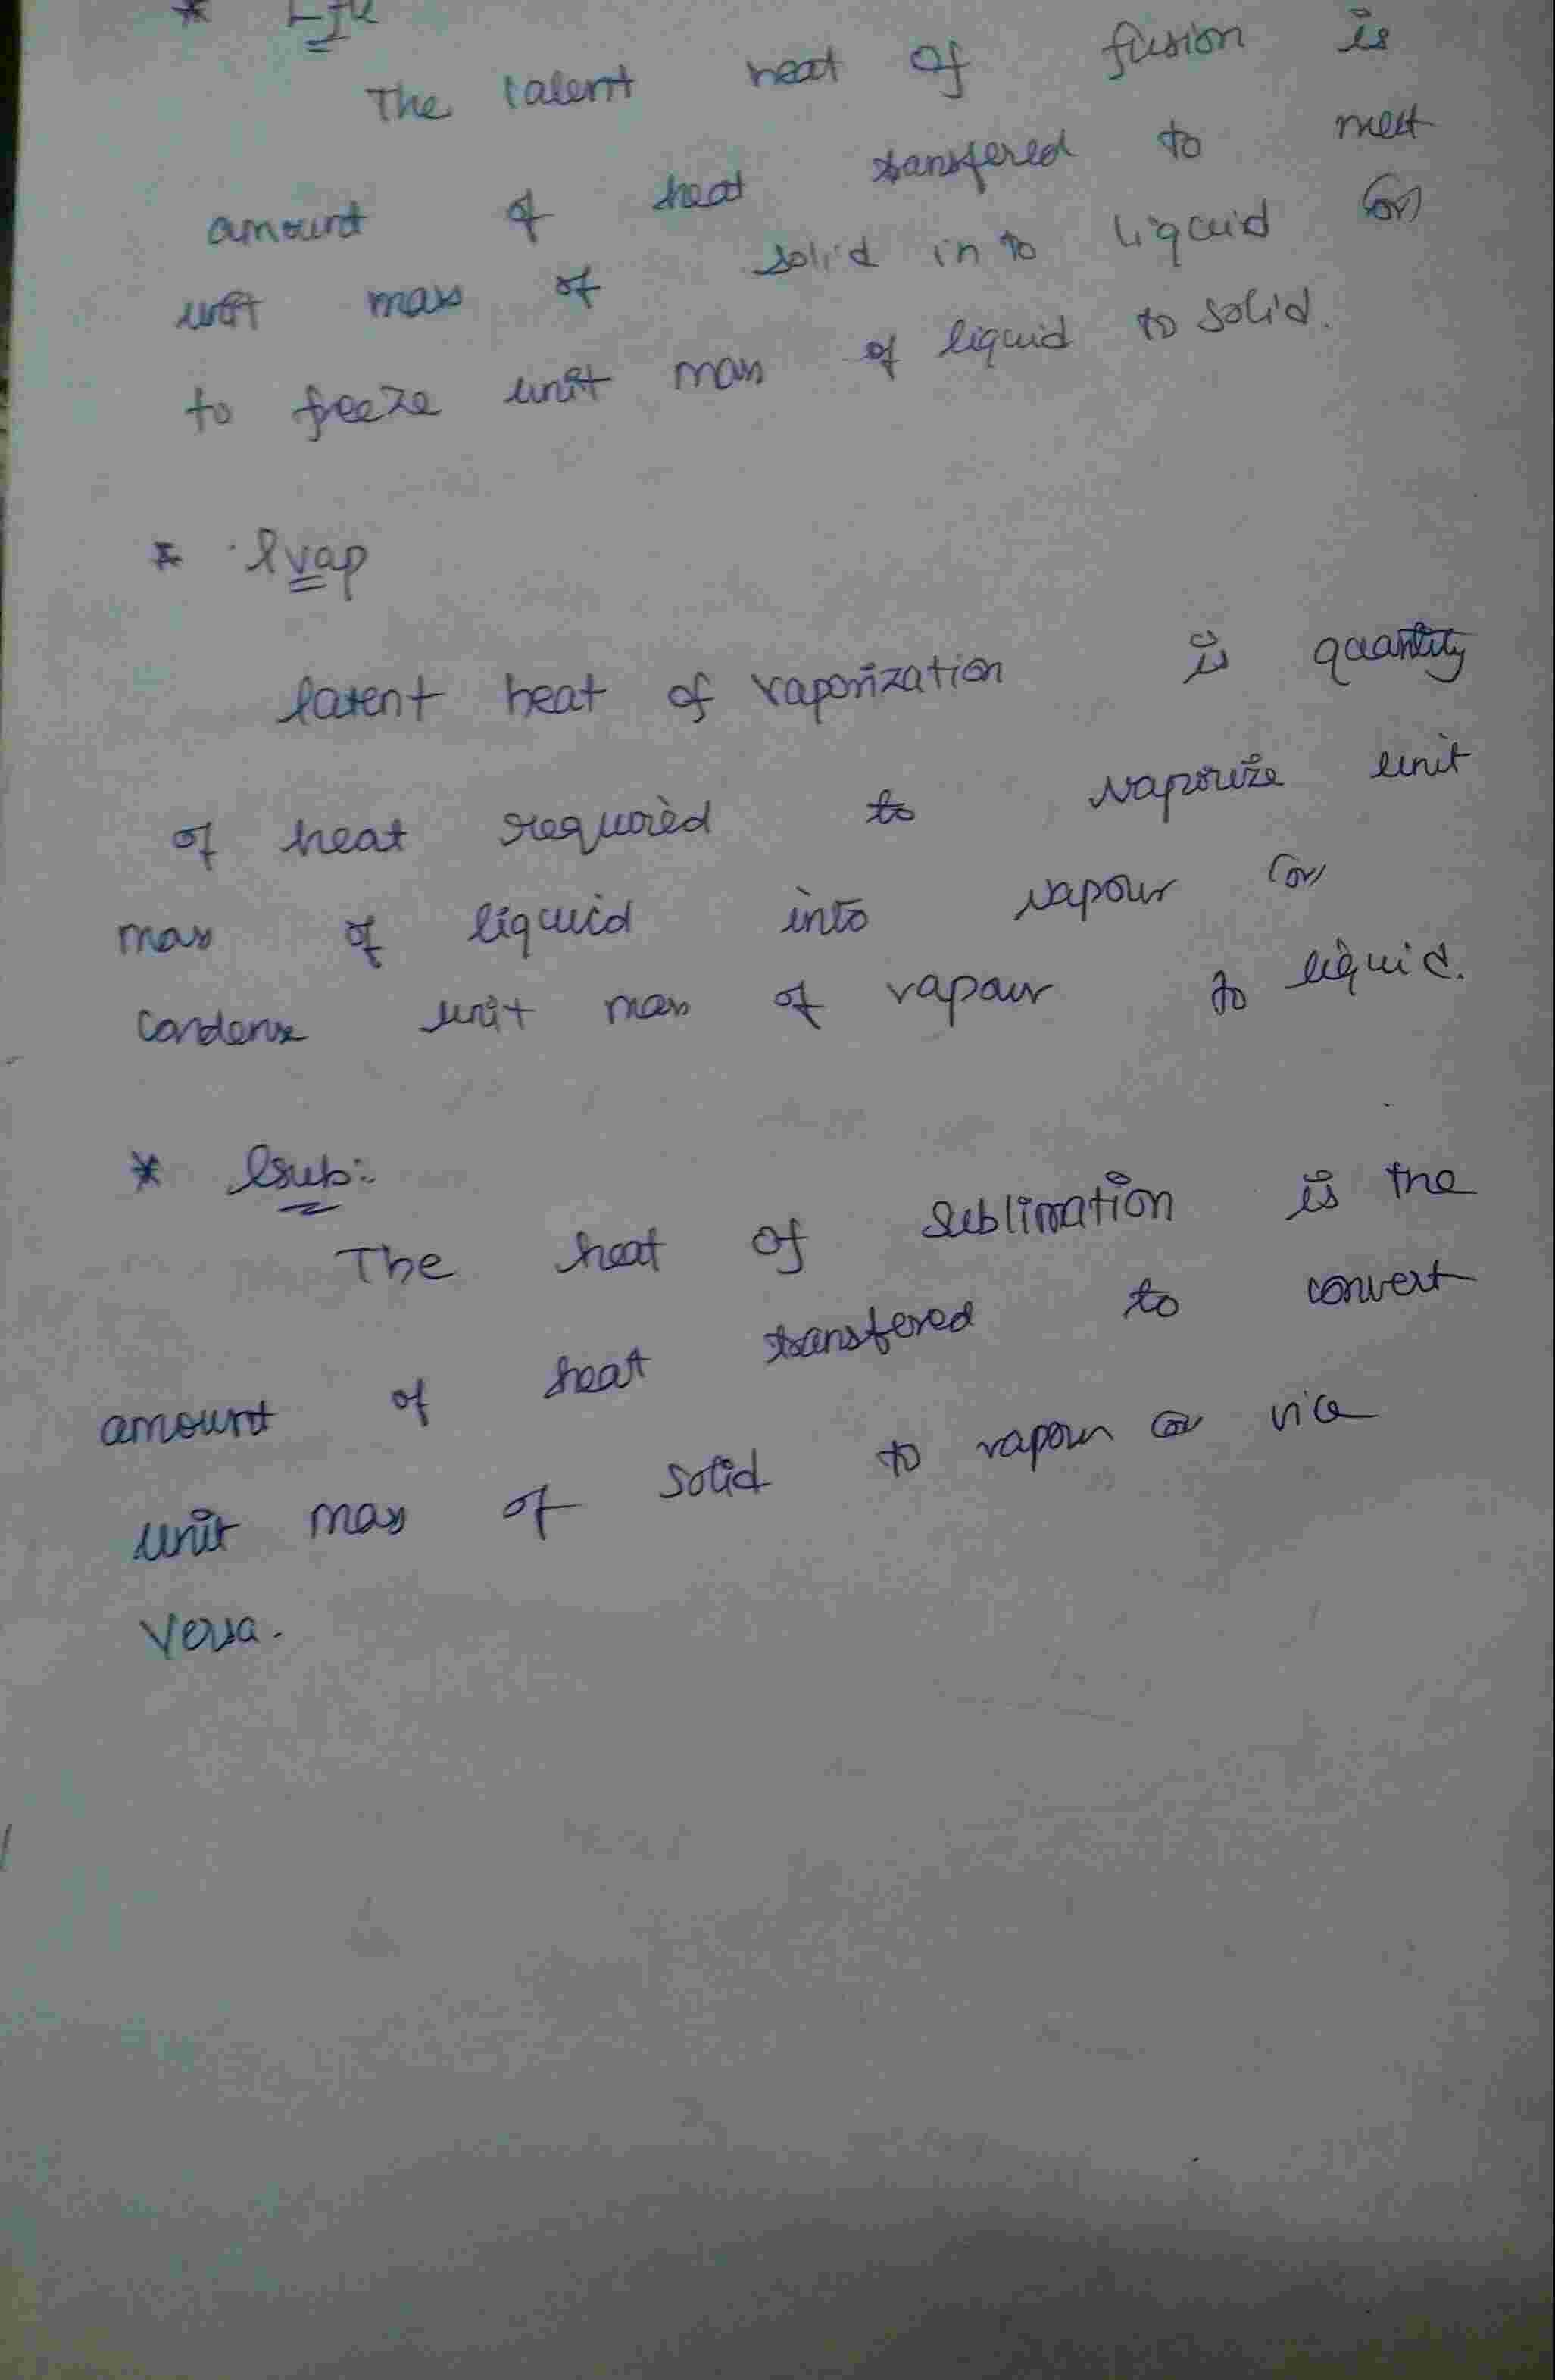 * Lfu
The latent heat of fusion is
amount of heat transfered to melt
unit mass of solid in to liquid (or)
to freeze unit mass of liquid to solid.
* lvap
latent heat of vaporization is quantity
of heat required to vaporize unit
mass of liquid into vapour (or)
condense unit mass of vapour to liquid.
* lsub:-
The heat of sublimation is the
amount of heat transfered to convert
unit mass of solid to vapour (or) vice
versa.